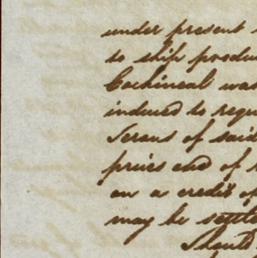 under present
to ship produ
Cochineal was
induced to requ
Serons of said
prices and of
on a credit of
may be settle
Should